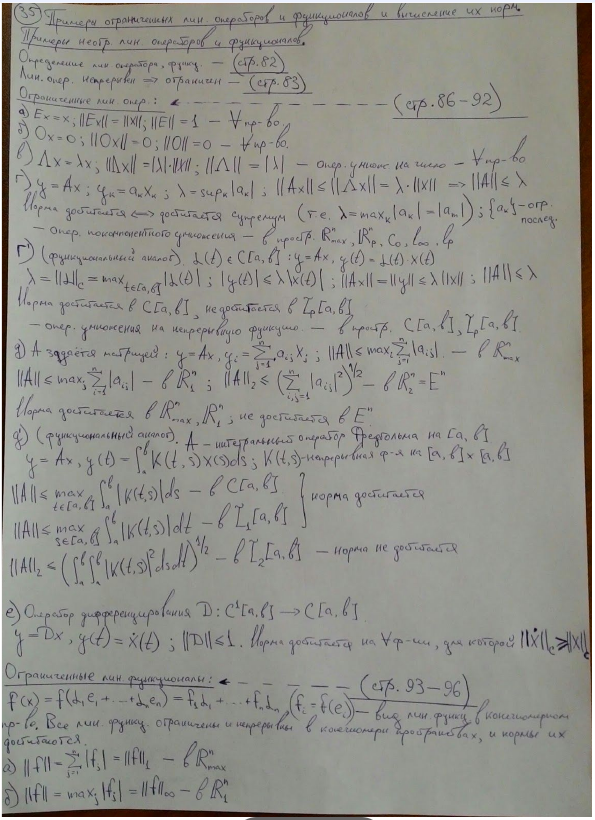 (35) Примеры ограниченных лин. операторов и функционалов и вычисление их норм.
Примеры неогр. лин. операторов и функционалов.
Определение лин. оператора, функц. — (стр.82)
Лин. опер. непрерывен ⟺ ограничен — (стр.83)
Ограниченные лин. опер.: ← (стр.86-92)
а) Ex=x; ||Ex||=||x||; ||E||=1 — ∀ пр-во.
б) Ox=0; ||Ox||=0; ||O||=0 — ∀ пр-во.
в) Λx=λx; ||Λx||=|λ|·||x||; ||Λ||=|λ| — опер. умнож. на число — ∀ пр-во
г) y=Ax; yₖ=aₖxₖ; λ=supₖ|aₖ|; ||Ax||≤||Λx||=λ·||x|| ⟹ ||A||≤λ
Норма достигается ⟺ достигается супремум (т.е. λ=maxₖ|aₖ|=|aₘ|); {aₖ}-огр. послед.
— опер. покомпонентного умножения — в простр. ℝⁿmax, ℝⁿp, c₀, l∞, lp
г') (функциональный аналог). L(t)∈C[a,b]: y=Ax, y(t)=L(t)·x(t)
λ=||L||c=max t∈[a,b] |L(t)|; |y(t)|≤λ|x(t)|; ||Ax||=||y||≤λ||x||; ||A||≤λ
Норма достигается в C[a,b], не достигается в L̃p[a,b]
— опер. умножения на непрерывную функцию — в простр. C[a,b], L̃p[a,b]
д) A задаётся матрицей: y=Ax, yᵢ=∑ⁿⱼ₌₁ aᵢⱼxⱼ; ||A||≤maxᵢ∑ⁿⱼ₌₁|aᵢⱼ|. — в ℝⁿmax
||A||≤maxⱼ∑ⁿᵢ₌₁|aᵢⱼ| — в ℝⁿ₁; ||A||₂≤(∑ⁿᵢ,ⱼ₌₁|aᵢⱼ|²)^1/2 — в ℝⁿ₂=Eⁿ
Норма достигается в ℝⁿmax, ℝⁿ₁; не достигается в Eⁿ
д') (функциональный аналог). A — интегральный оператор Фредгольма на [a,b]
y=Ax, y(t)=∫ₐᵇK(t,s)x(s)ds; K(t,s)-непрерывная ф-я на [a,b]×[a,b]
||A||≤max t∈[a,b] ∫ₐᵇ|K(t,s)|ds — в C[a,b] } норма достигается
||A||≤max s∈[a,b] ∫ₐᵇ|K(t,s)|dt — в L̃₁[a,b]
||A||₂≤(∫ₐᵇ∫ₐᵇ|K(t,s)|²dsdt)^1/2 — в L̃₂[a,b] — норма не достигается
е) Оператор дифференцирования D: C¹[a,b]→C[a,b]
y=Dx, y(t)=ẋ(t); ||D||≤1. Норма достигается на ∀ ф-ии, для которой ||ẋ||c≥||x||c
Ограниченные лин. функционалы: ← (стр.93-96)
f(x)=f(α₁e₁+...+αₙeₙ)=f₁α₁+...+fₙαₙ, (fᵢ=f(eᵢ)) — вид лин. функц. в конечномерном
пр-ве. Все лин. функц. ограничены и непрерывны в конечномерн. пространствах, и нормы их
достигаются.
а) ||f||=∑ⁿⱼ₌₁|fⱼ|=||f||₁ — в ℝⁿmax
б) ||f||=maxⱼ|fⱼ|=||f||∞ — в ℝⁿ₁